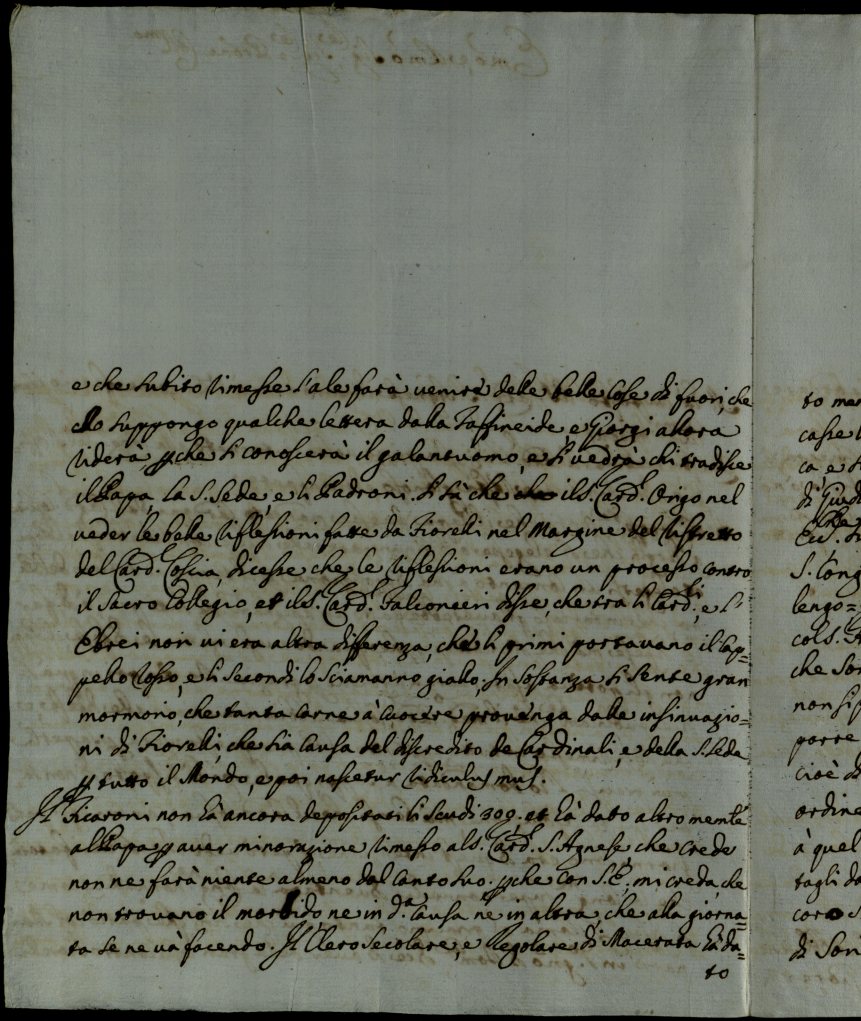 e che subito rimesse l'ale farà venire delle belle Cose di fuori, che
suppongo qualche lettera dalla e Giorgi allora
riderà ꝑche si conoscerà il galantuomo, e si vedrà chi tradisce
il Papa, la S. Sede, e li Padroni. Si sà che il S. Card.l Origo nel
veder le belle riflessioni fatte da Fiorelli nel Margine del ristretto
del Card.l Coscia, dicesse che le riflessioni erano un processo contro
il Sacro Collegio, et il S. Card.l Falconieri disse, che tra li Card.li, e l'
Ebrei non vi era altra differenza, che li primi portavano il Cap=
pello rosso, e li secondi lo Sciamanno giallo. In sostanza si sente gran
mormorio, che tanta Carne à Cuocere provenga dalle insinuazio=
ni di Fiorelli, che sia Causa del discredito de Cardinali, e della S. Sede
ꝑ tutto il Mondo, e poi nascetur ridiculus mus.
Il Ficaroni non hà ancora depositati li Scudi 309. et hà dato altro mem.le
al Papa ꝑ aver minorazione rimesso al S. Card.l S. Agnese che crede
non ne farà niente almeno dal Canto suo. ꝑche con S. E. mi creda, che
non trovano il morbido, ne in d.a Causa ne in altra, che alla giorna=
ta se ne và facendo. Il Clero Secolare, e Regolare di Macerata hà da=
to
to
ca e
S. Cong
lengo=
col S.
che
non si
cioè
ordine
à quel
tagli
di